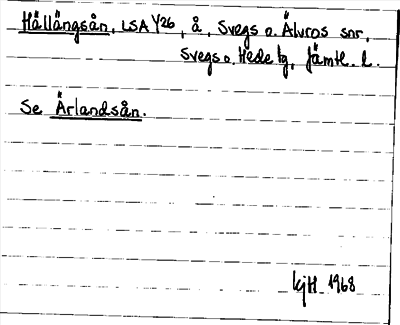 Hållängsån, LSA Y26, å, Svegs o. Älvros snr,
Svegs o. Hede tg, Jämtl. l.
Se Ärlandsån.
kjH 1968